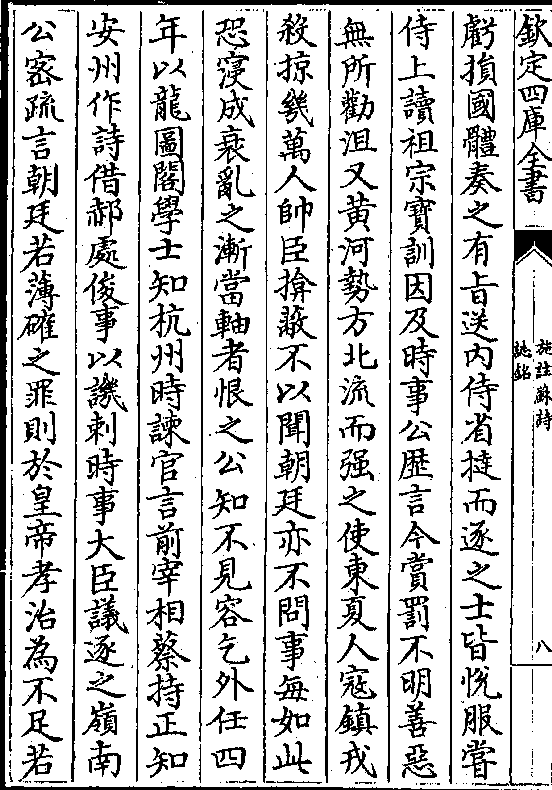 欽定四庫全書
施註蘇詩
誌銘
八
虧損國體奏之有旨送內侍省撻而逐之士皆悅服嘗
侍上讀祖宗寶訓因及時事公歴言今賞罰不明善惡
無所勸沮又黄河勢方北流而强之使東夏人寇鎮戎
殺掠幾萬人帥臣揜蔽不以聞朝廷亦不問事每如此
恐寖成衰亂之漸當軸者恨之公知不見容乞外任四
年以龍圖閣學士知杭州時諫官言前宰相蔡持正知
安州作詩借郝處俊事以譏刺時事大臣議逐之嶺南
公宻疏言朝廷若薄確之罪則於皇帝孝治為不足若